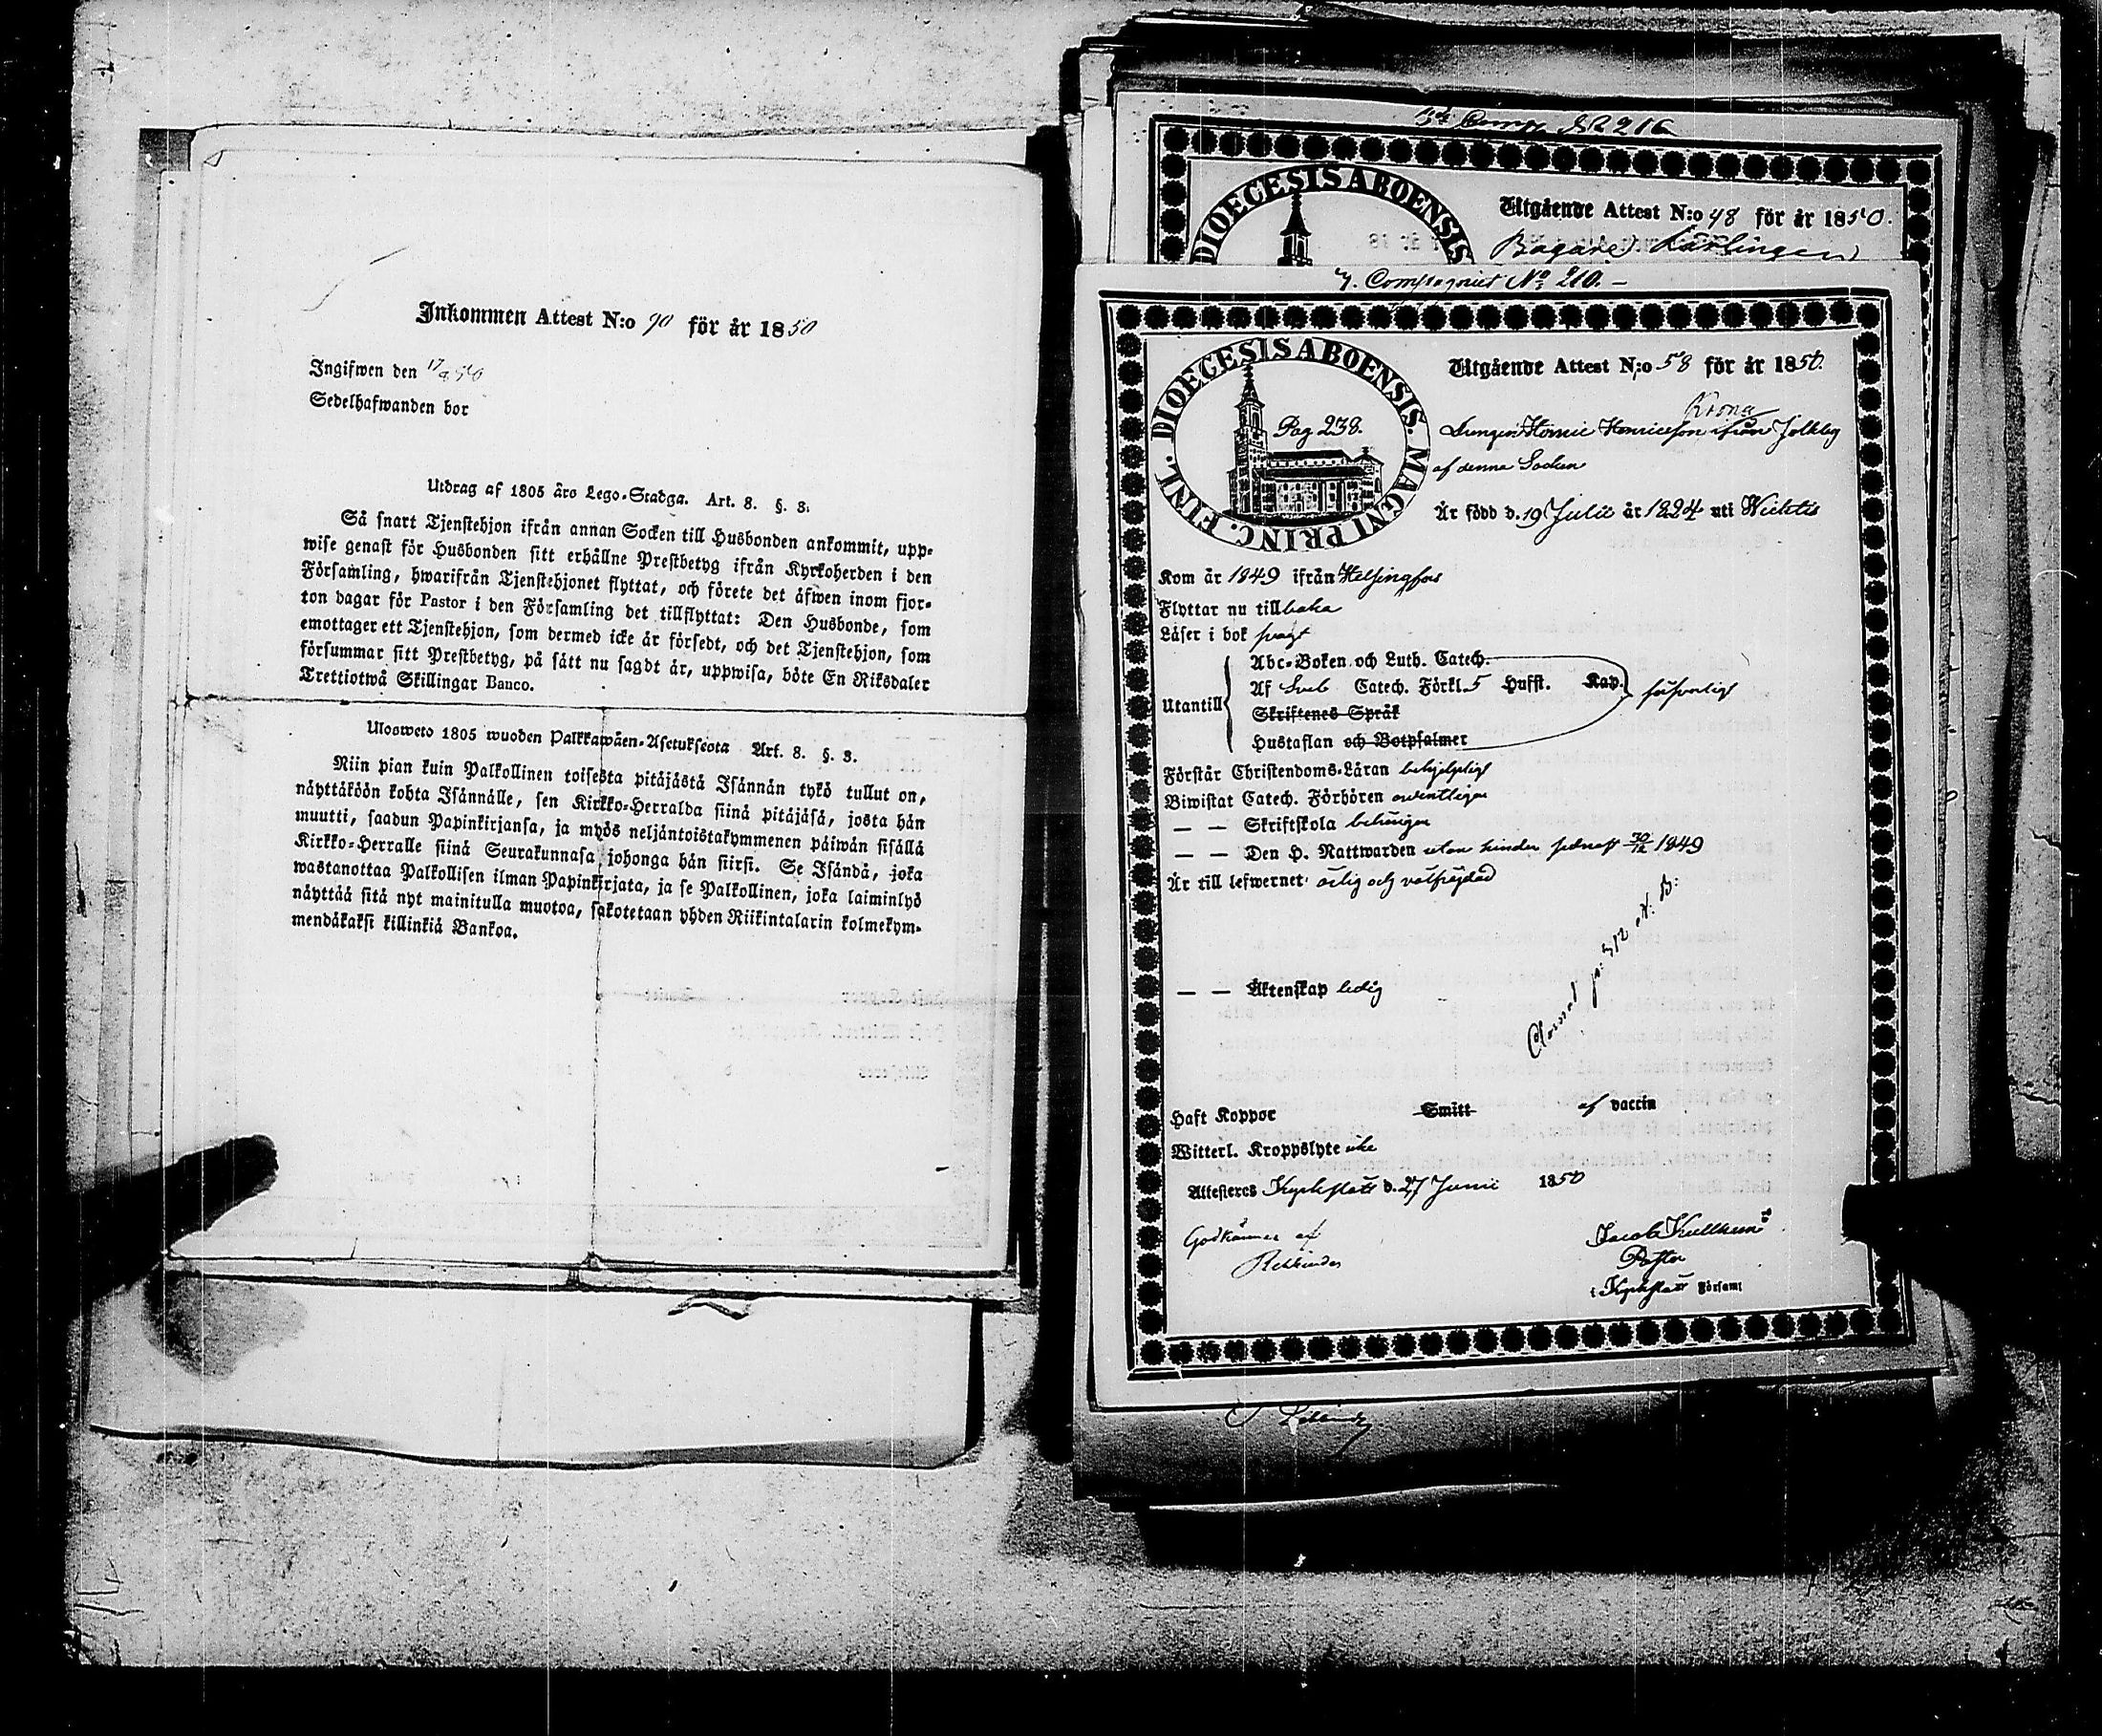 Inkommen Attest N:o 90 för år 1850
Ingifwen den 17/9 50
Sedelhafwanden bor
Utdrag af 1805 års Lego-Stadga. Art. 8. §. 3.
Så snart Tjenstehjon ifrån annan Socken till Husbonden ankommit, upp-
wise genast för Husbonden sitt erhållne Prestbetyg ifrån Kyrkoherden i den
Församling, hwarifrån Tjenstehjonet flyttat, och förete det äfwen inom fjor-
ton dagar för Pastor i den Församling det tillflyttat: Den Husbonde, som
emottager ett Tjenstehjon, som dermed icke är försedt, och det Tjenstehjon, som
försummar sitt Prestbetyg, på sätt nu sagdt är, uppwisa, böte En Riksdaler
Trettiotwå Skillingar Banco.
Ulosweto 1805 wuoden Palkkawäen-Asetuksesta Art. 8. §. 3.
Niin pian kuin Palkollinen toisesta pitäjästä Isännän tykö tullut on,
näyttäköön kohta Isännälle, sen Kirkko-Herralda siinä pitäjäsä, josta hän
muutti, saadun Papinkirjansa, ja myös neljäntoistakymmenen päiwän sisällä
Kirkko-Herralle siinä Seurakunnasa, johonga hän siirsi. Se Isändä, joka
wastanottaa Palkollisen ilman Papinkirjata, ja se Palkollinen, joka laiminlyö
näyttää sitä nyt mainitulla muotoa, sakotetaan yhden Riikintalarin kolmekym-
mendäkaksi killinkiä Bankoa.
3de Comp. № 216
DIOECESIS ABOENSIS
Utgående Attest N:o 48 för år 1850.
Bagare Lärlingen
7. Compagniet No 210.
DIOECESIS ABOENSIS. MAGNI PRINC. FINL.
Pag 238.
Utgående Attest N:o 58 för år 1850.
Krona
Drengen Henric Henricsson ifrån Jolkby
af denna Socken
Är född d. 19 Julii år 1824 uti Wichtis
Kom år 1849 ifrån Helsingfors
Flyttar nu tillbaka
Läser i bok svagt
Abc-Boken och Luth. Catech.
Utantill Af Sveb Catech. Förkl. 5 Hufst. Kap. försvarligt
Skriftenes Språk
Hustaflan och Botpsalmer
Förstår Christendoms-Läran behjelpligt
Biwistat Catech. Förhören ordentligen
— — Skriftskola behörigen
— — Den H. Nattwarden utan hinder senast 30/12 1849
Är till lefwernet ärlig och välfrejdad
— — Äktenskap ledig
p: 312 Nt: B:
Haft Koppor Smitt af vaccin
Witterl. Kroppslyte icke
Attesteres Kyrkslätt d. 27 Junii 1850
Godkännes af
Rehbinder
Jacob Kullhem
Pastor
i Kyrkslätt Församl